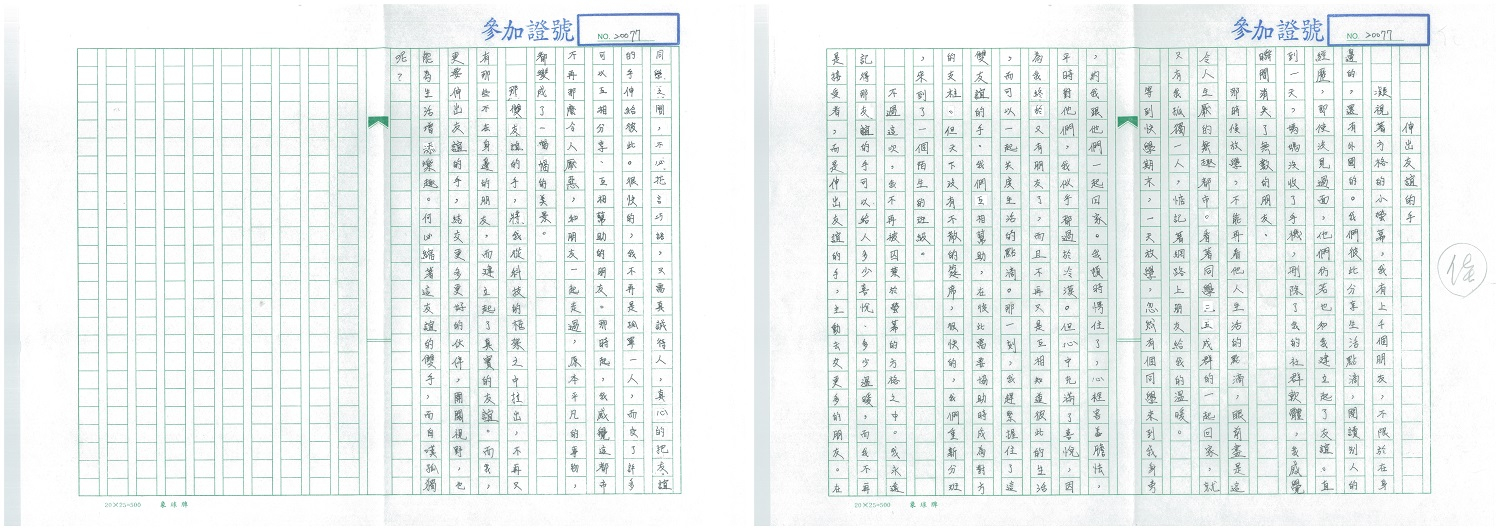 參加證號
NO. 20077
伸出友誼的手
凝視著方格的小螢幕，我有上千個朋友，不限於在身
邊的，還有外國的。我們彼此分享生活點滴，閱讀別人的
經歷，即使沒見過面，他們彷若也和我建立起了友誼。直
到一天，媽媽沒收了手機，刪除了我的社群軟體，我感覺
瞬間有失了無數的朋友。
那時候放學，不能再看他人生活的點滴，眼前盡是這
令人生厭的無趣都市。看著同學三五成群的一起回家，就
又有我孤獨一人，惦記著網路上朋友給我的溫暖。
等到快學期末，一天放學，忽然有個同學來到我身旁
，約我跟他們一起回家。我頓時愣住了，心裡害羞膽怯，
平時對他們，我似乎都過於冷漠。但心中充滿了喜悅，因
為我終於又有朋友了，而且不再又是互相知道彼此的生活
，而可以一起共度生活的點滴。那一刻，我趕緊握住了這
雙友誼的手。我們互相幫助，在彼此需要協助時成為對方
的支柱。但天下沒有不散的筵席，很快的，我們重新分班
，來到了一個陌生的班級。
不過這次，我不再被囚禁於螢幕的方格之中。我永遠
記得那友誼的手可以給人多少喜悅、多少溫暖，而我不再
是接受者，而是伸出友誼的手，主動去交更多的朋友。在
20×25=500
象球牌
佳
參加證號
NO. 20077
同學之間，不必花言巧語，又需真誠待人，真心的把友誼
的手伸給彼此。很快的，我不再是孤單一人，而交了許多
可以互相分享、互相幫助的朋友。那時起，我感覺這都市
不再那麼令人厭惡，和朋友一起走過，原本平凡的事物，
都變成了一幅幅的美景。
那雙友誼的手，將我從科技的框架之中拉出，不再又
有那些不在身邊的朋友，而建立起了真實的友誼。而我，
更要伸出友誼的手，結交更多更好的伙伴，開闊視野，也
能為生活增添樂趣。何必縮著這友誼的雙手，而自嘆孤獨
呢？
20×25=500
象球牌